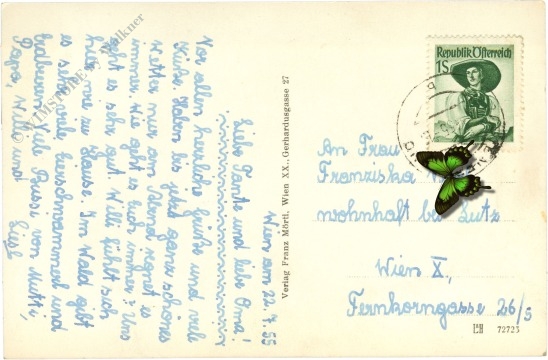 Wien am 22.7.55
Liebe Tante und liebe Oma!
Vor allem herzliche Grüße und viele
Küsse. Haben bis jetzt ganz schönes
Wetter nur am Abend regnet es
immer. Wie geht es euch immer? Uns
geht es sehr gut. Willi fühlt sich
hier wie zu Hause. Im Wald gibt
es sehr viele
Viel Busse von Mutti,
Papa, Willi und
Verlag Franz Mörtl, Wien XX., Gerhardusgasse 27
Republik Österreich
1S
An Frau
Franziska
wohnhaft bei Lutz
Wien X.,
Fernkorngasse 26/5
72723